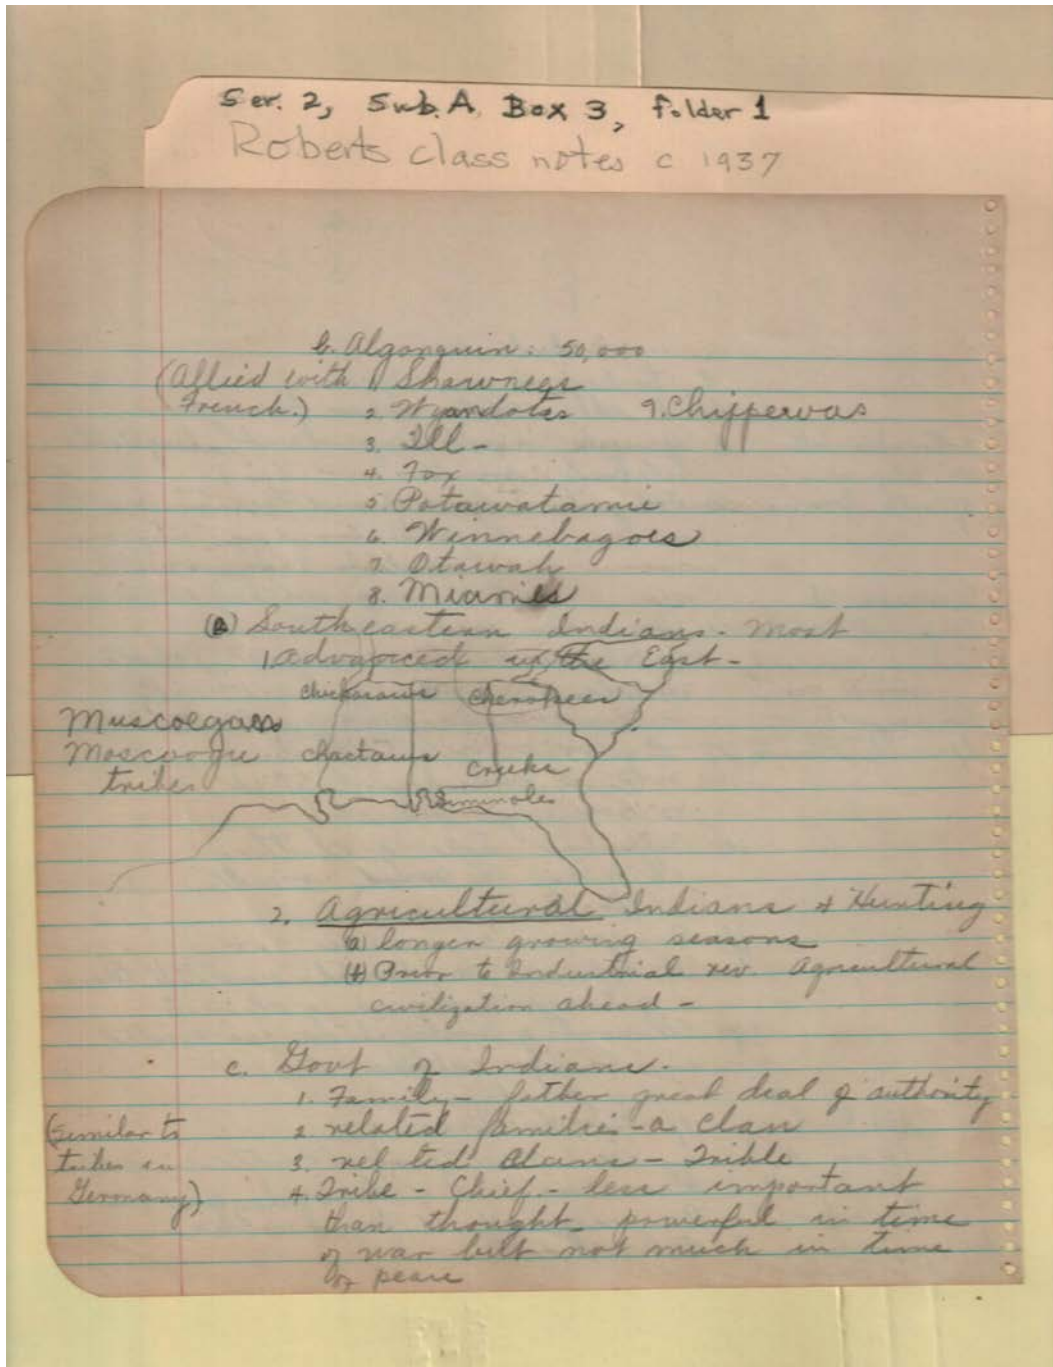 Ser. 2, Sub. A, Box 3, folder 1
Roberts class notes c 1937
b. Algonquin: 50,000
(Allied with French.)
1 Shawnees
2. Wyandotes
9. Chippewas
3. Ill-
4. Fox
5 Potawatamie
6. Winnebagoes
7 Otawah
8. Miamies
(B) Southeastern Indians. Most
1. advanced in the East-
chickasaws Cherokees
Muscoegans
choctaws
creeks
tribes
Seminoles
2. Agricultural Indians & Hunting
(a) longer growing seasons
(b) Prior to Industrial rev. Agricultural
civilization ahead -
c. Govt of Indians.
1. Family - father great deal of authority
2 related families - a clan
(Similar to
tribes in
Germany)
3. rel ted clans - Trible
4. Tribe - Chief - less important
than thought - powerful in time
of war but not much in time
of peace